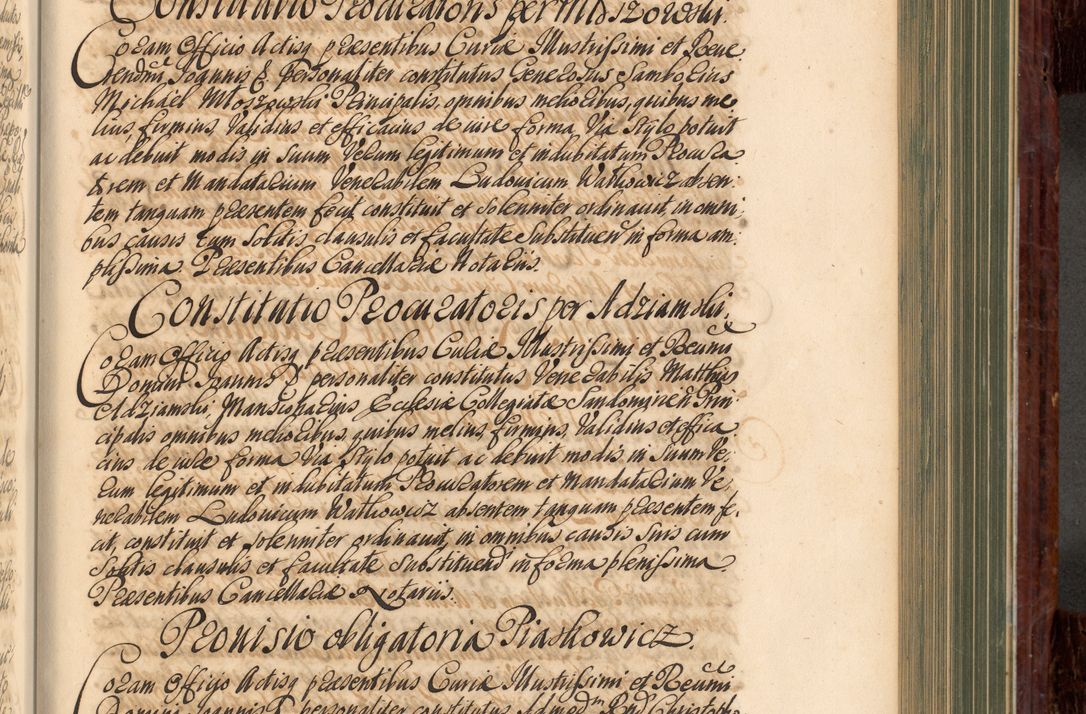 Constitutio Procuratoris per Młoszowski.
Coram Officio Actisq; præsentibus Curiæ Illustrissimi et Reve
rendmi Joannis E. personaliter constitutus Generosus Samboeius
Michael Młoszowski Principalis, omnibus melioribus, quibus me
lius, firmius, validius et efficacius de iure forma, Via, stylo potuit
ac debuit modis in suum Verum legitimum et indubitatum Procura
torem et Mandatarium Venerabilem Ludovicum Wathowicz absen:
tem tanquam præsentem fecit, constituit et solenniter ordinavit, in omni:
bus causis cum solitis clausulis et facultate substituen in forma am:
plissima. Præsentibus Cancellariæ Notariis.
Constitutio Procuratoris per Adziamski.
Coram Officio Actisq; præsentibus Curiæ Illustrissimi et Reverendmi
Domini Joannis P. personaliter constitutus Venerabilis Matthias
Adziamski, Mansionarius Ecclesiæ Collegiatæ Sandomirien Prin
cipalis omnibus melioribus, quibus melius, firmius, Validius et effica
cius de iure forma, Via, stylo potuit ac debuit modis in suum Ve:
rum legitimum et indubitatum Procuratorem et Mandatarium Ve:
nerabilem Ludovicum Wathowicz absentem tanquam præsentem fe:
cit, constituit et solenniter ordinavit, in omnibus causis suis cum
solitis clausulis et facultate substituend in forma plenissima.
Præsentibus Cancellariæ Notariis.
Provisio obligatoria Piaskowicz.
Coram Officio Actisq præsentibus Curiæ Illustrissimi et Reverendmi
Domini Joannis P. personaliter constitutus Admodm Rnd Christoph